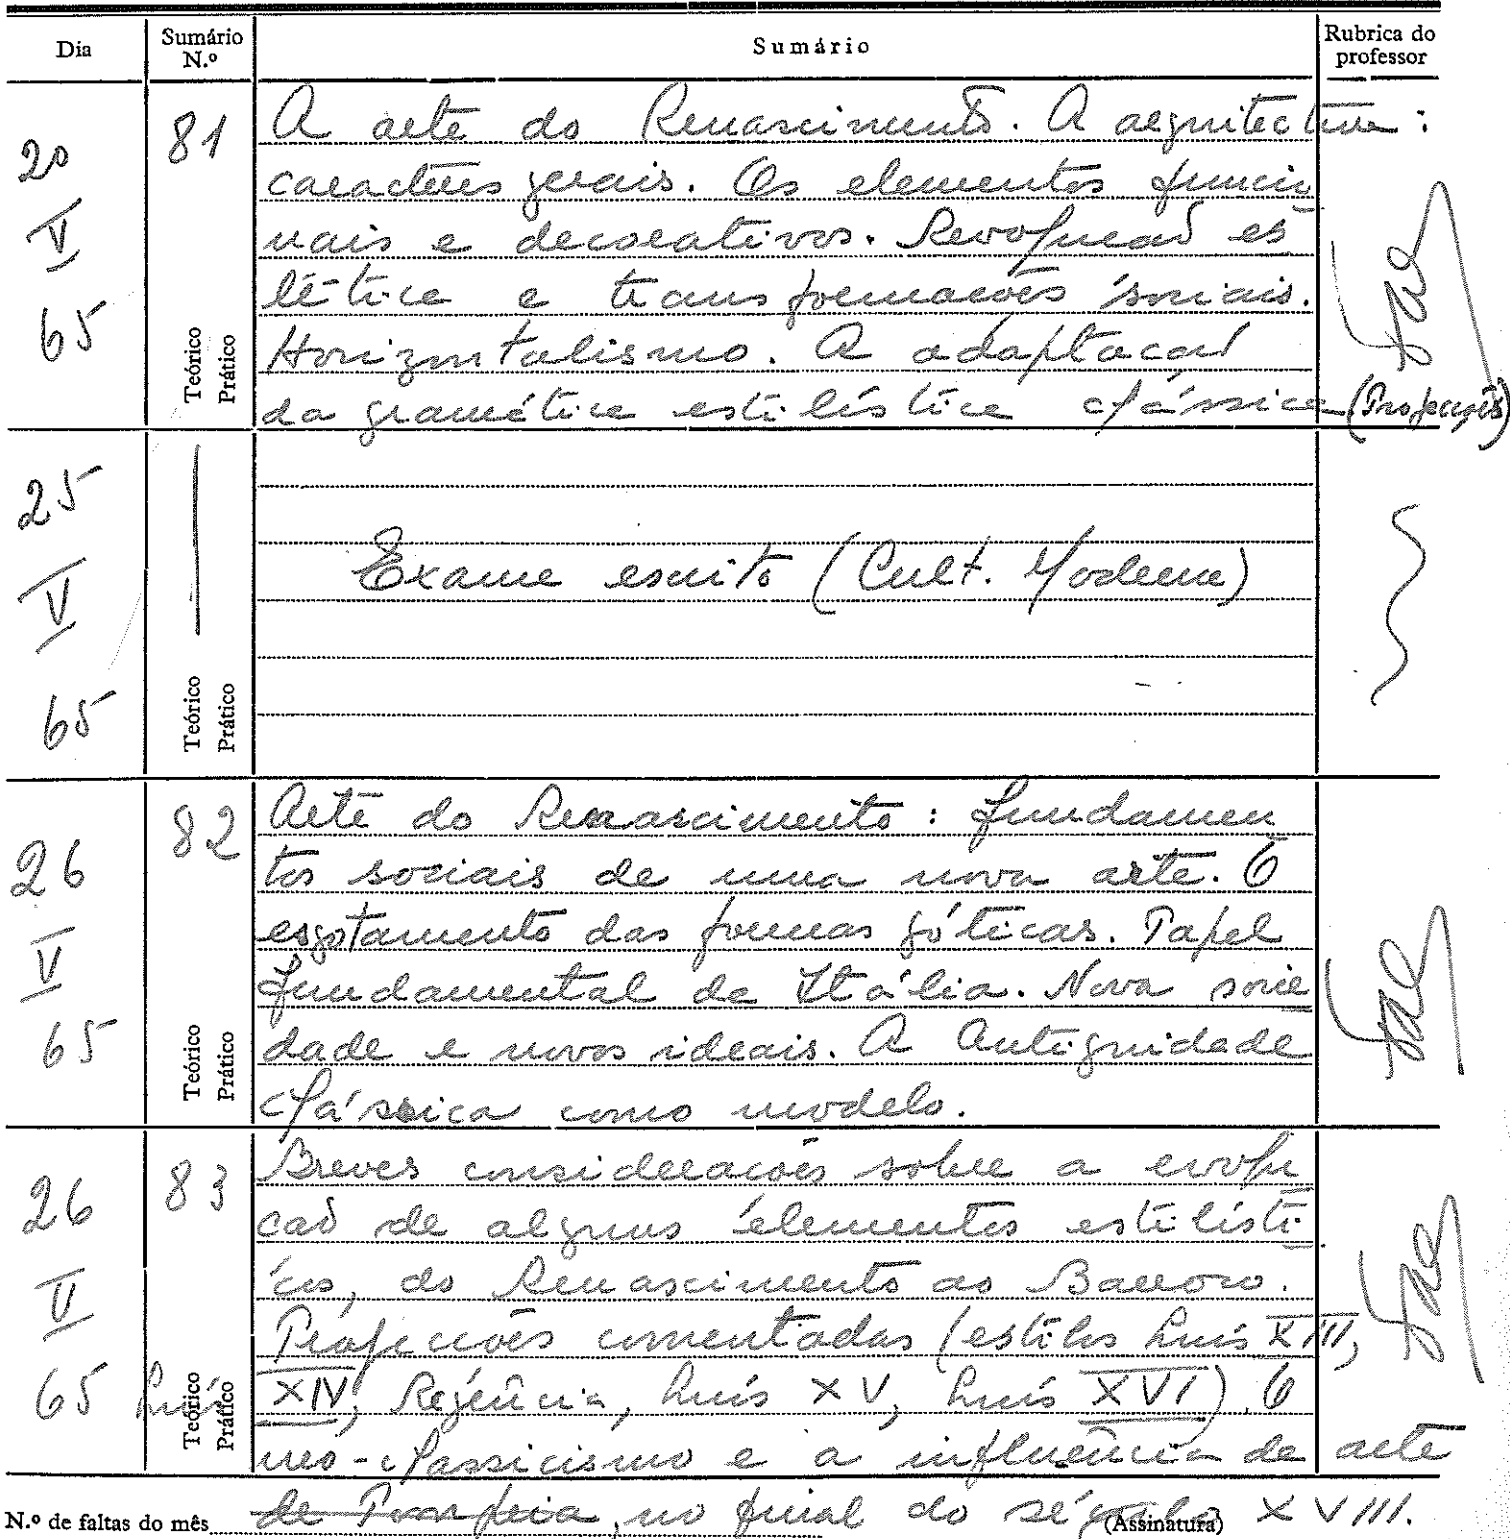 Dia Sumário N.º Sumário Rubrica do professor
20 V 65
81
Teórico Prático
A arte do Renascimento. A arquitectura:
caracteres gerais. Os elementos funcio
nais e decorativos. Revolução es
tética e transformações sociais.
Horizontalismo. A adaptação
da gramática estilística clássica (Projecções)
25 V 65
Teórico Prático
Exame escrito (Cult. Moderna)
26 V 65
82
Teórico Prático
Arte do Renascimento: fundamen
tos sociais de uma nova arte. O
esgotamento das formas góticas. Papel
fundamental da Itália. Nova socie
dade e novos ideais. A Antiguidade
clássica como modelo.
26 V 65
83
Teórico Prático
Breves considerações sobre a evolu
ção de alguns elementos estilísti
cos, do Renascimento ao Barroco.
Projecções comentadas (estilos Luís XIII,
Luís XIV, Regência, Luís XV, Luís XVI). O
neo-classicismo e a influência da arte
de Pompeia, no final do século XVIII.
N.º de faltas do mês (Assinatura)